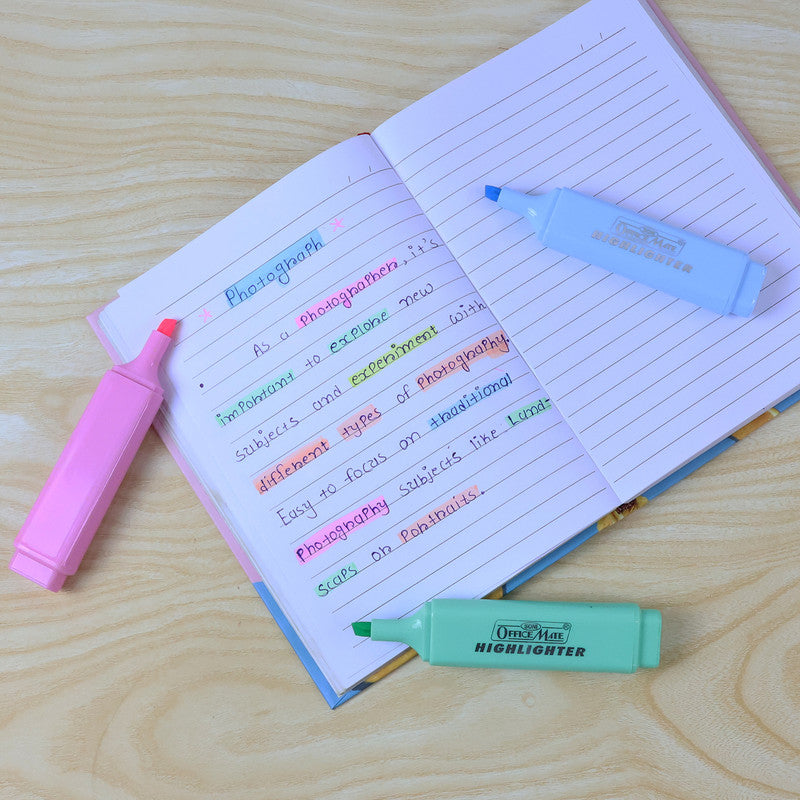 Photograph
As a photographer, it's
important to explore new
subjects and experiment with
different types of photography.
Easy to focus on traditional
photography subjects like Land-
scaps or portraits.
OFFICE MATE
HIGHLIGHTER
SONI
OFFICE MATE
HIGHLIGHTER